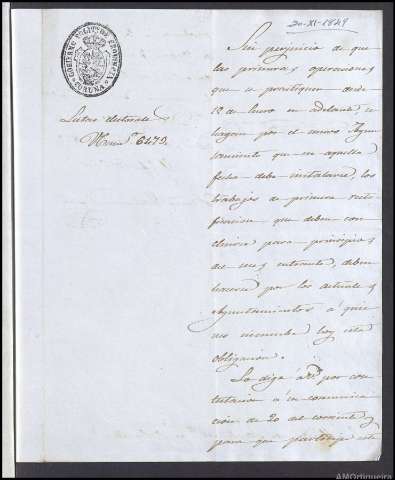 20-XI-1849
GOBIERNO POLITICO DE PROVINCIA
CORUÑA
Listas electorales
Num.º 6479.
Sin perjuicio de que
las primeras operaciones
que se practiquen desde
12 de Enero en adelante se
hagan por el nuevo Ayun
tamiento que en aquella
fecha debe instalarse, los
trabajos de primera recti-
ficacion que deben con
cluirse para principios
del mes entrante, deben
hacerse por los actuales
Ayuntamientos á quie
nes incumbe hoy esta
obligacion.
Lo digo á V. por con
testacion á su comunica
cion de 20 del corriente y
para que participe esta
AMOrtigueira